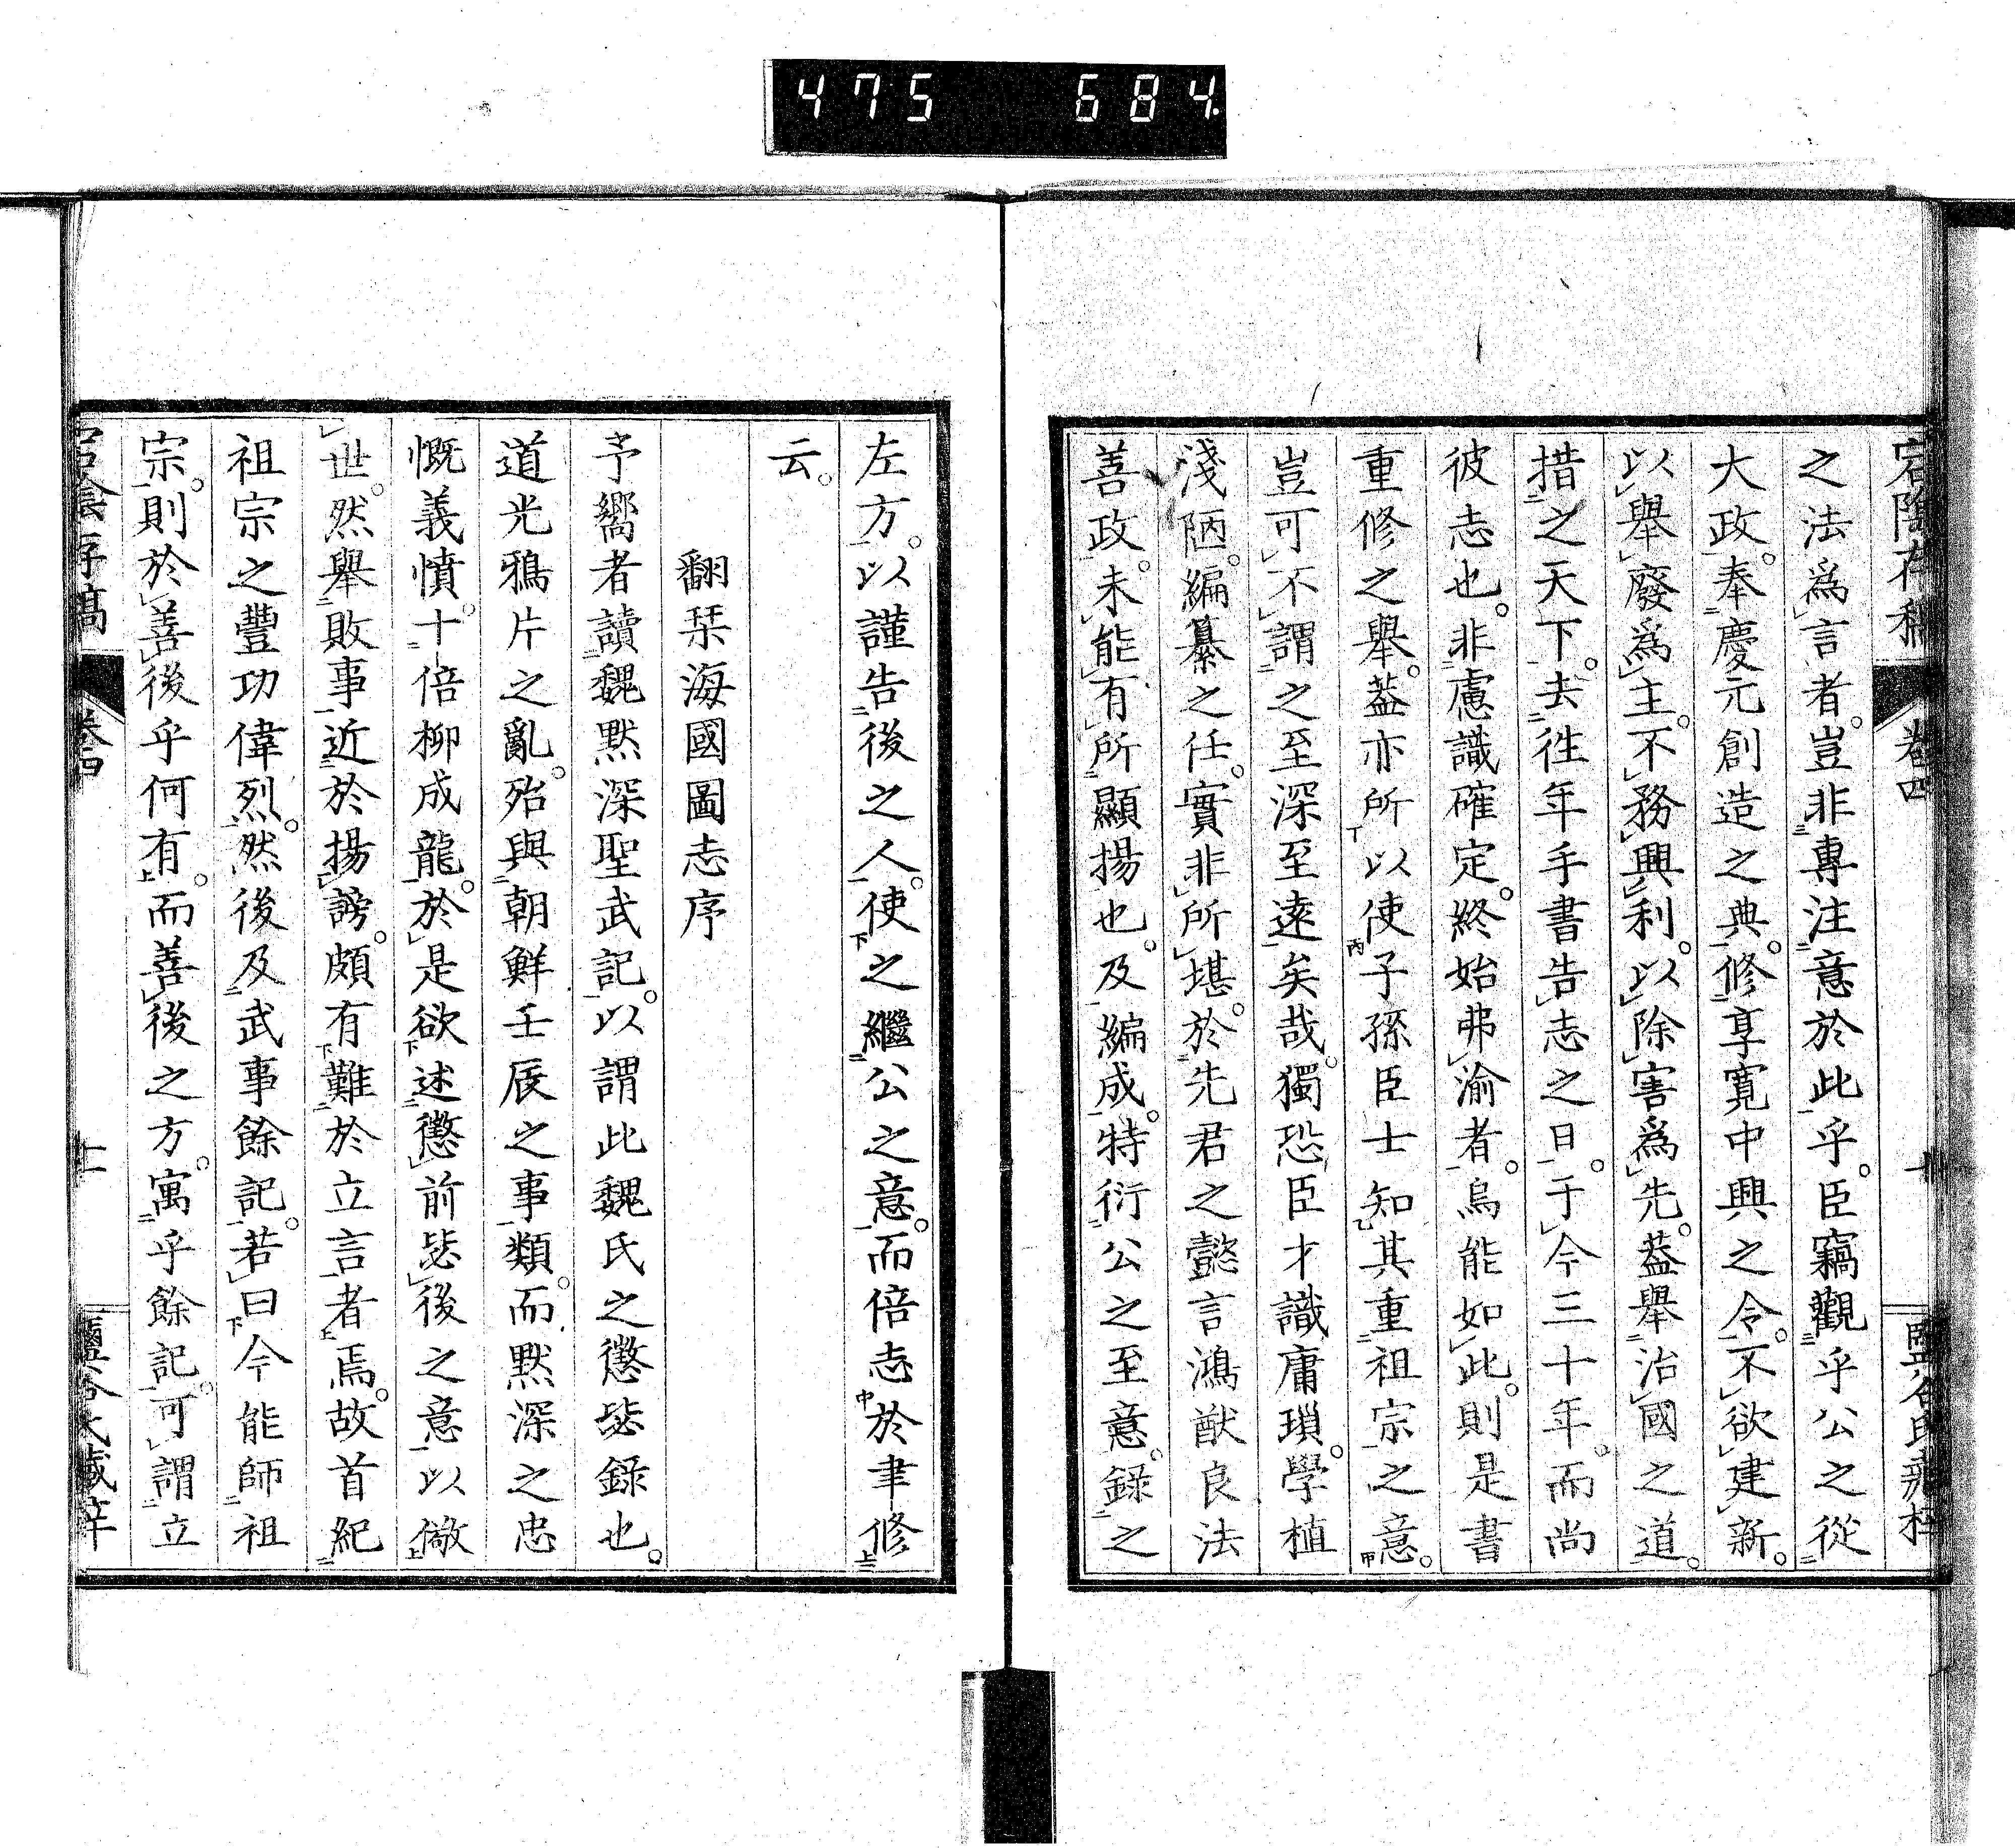 475 684
宕陰存稿 卷四 十
之法爲言者。豈非專注意於此乎。臣竊觀乎公之從
大政。奉慶元創造之典。修享寬中興之令。不欲建新。
以舉廢爲主。不務興利。以除害爲先。蓋舉治國之道。
措之天下。去徃年手書告志之日。于今三十年。而尚
彼志也。非慮識確定。終始弗渝者。烏能如此。則是書
重修之舉。蓋亦所以使子孫臣士知其重祖宗之意。
豈可不謂之至深至遠矣哉。獨恐臣才識庸瑣。學植
淺陋。編纂之任。實非所堪。於先君之懿言鴻猷良法
善政。未能有所顯揚也。及編成。特衍公之至意。錄之
左方。以謹告後之人。使之繼公之意。而倍志於聿修
云。
翻栞海國圖志序
予嚮者讀魏默深聖武記。以謂此魏氏之懲毖錄也。
道光鴉片之亂。殆與朝鮮壬辰之事類。而默深之忠
慨義憤。十倍柳成龍。於是欲述懲前毖後之意。以儆
世。然舉敗事。近於揚謗。頗有難於立言者焉。故首紀
祖宗之豐功偉烈。然後及武事餘記。若曰今能師祖
宗。則於善後乎何有。而善後之方。寓乎餘記。可謂立
宕陰存稿 卷四 十一